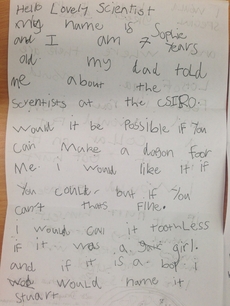 Hello Lovely Scientist
my name is Sophie
and I am 7 years
old my dad told
me about the
scientists at the CSIRO.
Would it be possible if you
can make a dragon foor
Me. i would like it if
you could but if you
can't thats fine.
I would call it toothless
if it was a girl.
and if it is a boy i
would name it
Stuart